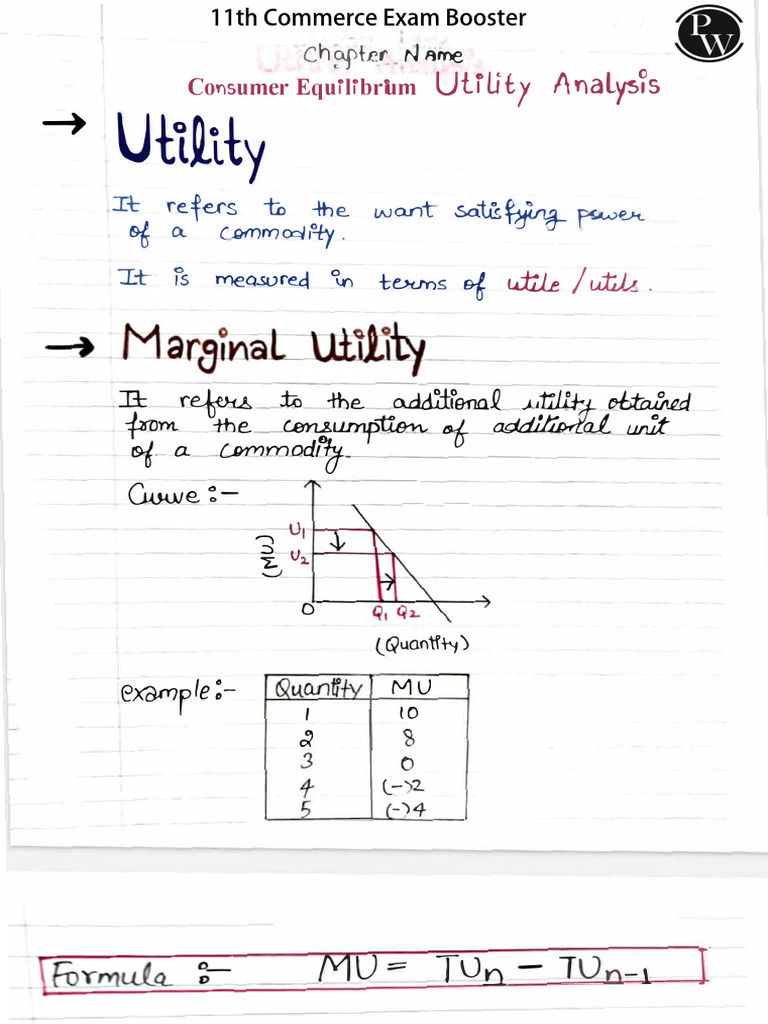 11th Commerce Exam Booster
PW
Chapter Name
Consumer Equilibrium Utility Analysis
→ Utility
It refers to the want satisfying power
of a commodity.
It is measured in terms of utile /utils.
→ Marginal Utility
It refers to the additional utility obtained
from the consumption of additional unit
of a commodity.
Curve :-
(MU)
U1
U2
O
Q1 Q2
(Quantity)
example:-
Quantity MU
1 10
2 8
3 0
4 (-)2
5 (-)4
Formula :- MU = TUn - TUn-1